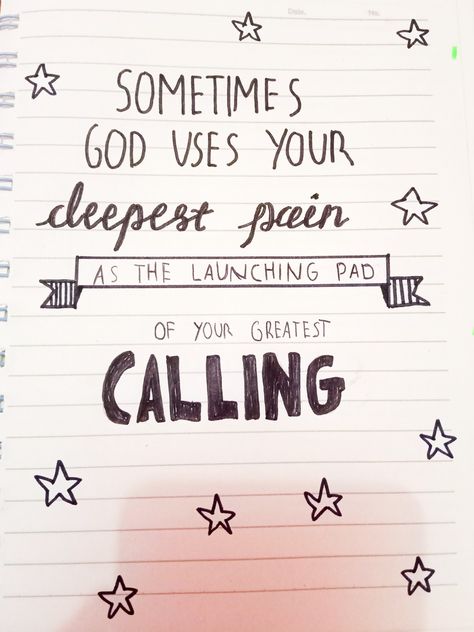 Date. No.
SOMETIMES
GOD USES YOUR
deepest pain
AS THE LAUNCHING PAD
OF YOUR GREATEST
CALLING